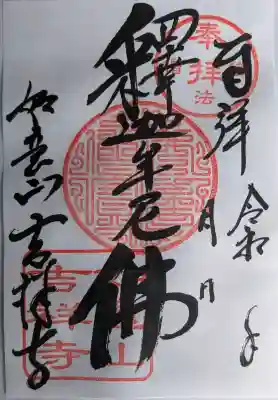 奉拝
令和 年
月 日
釋迦牟尼佛
如意山 吉祥寺
山
吉祥寺